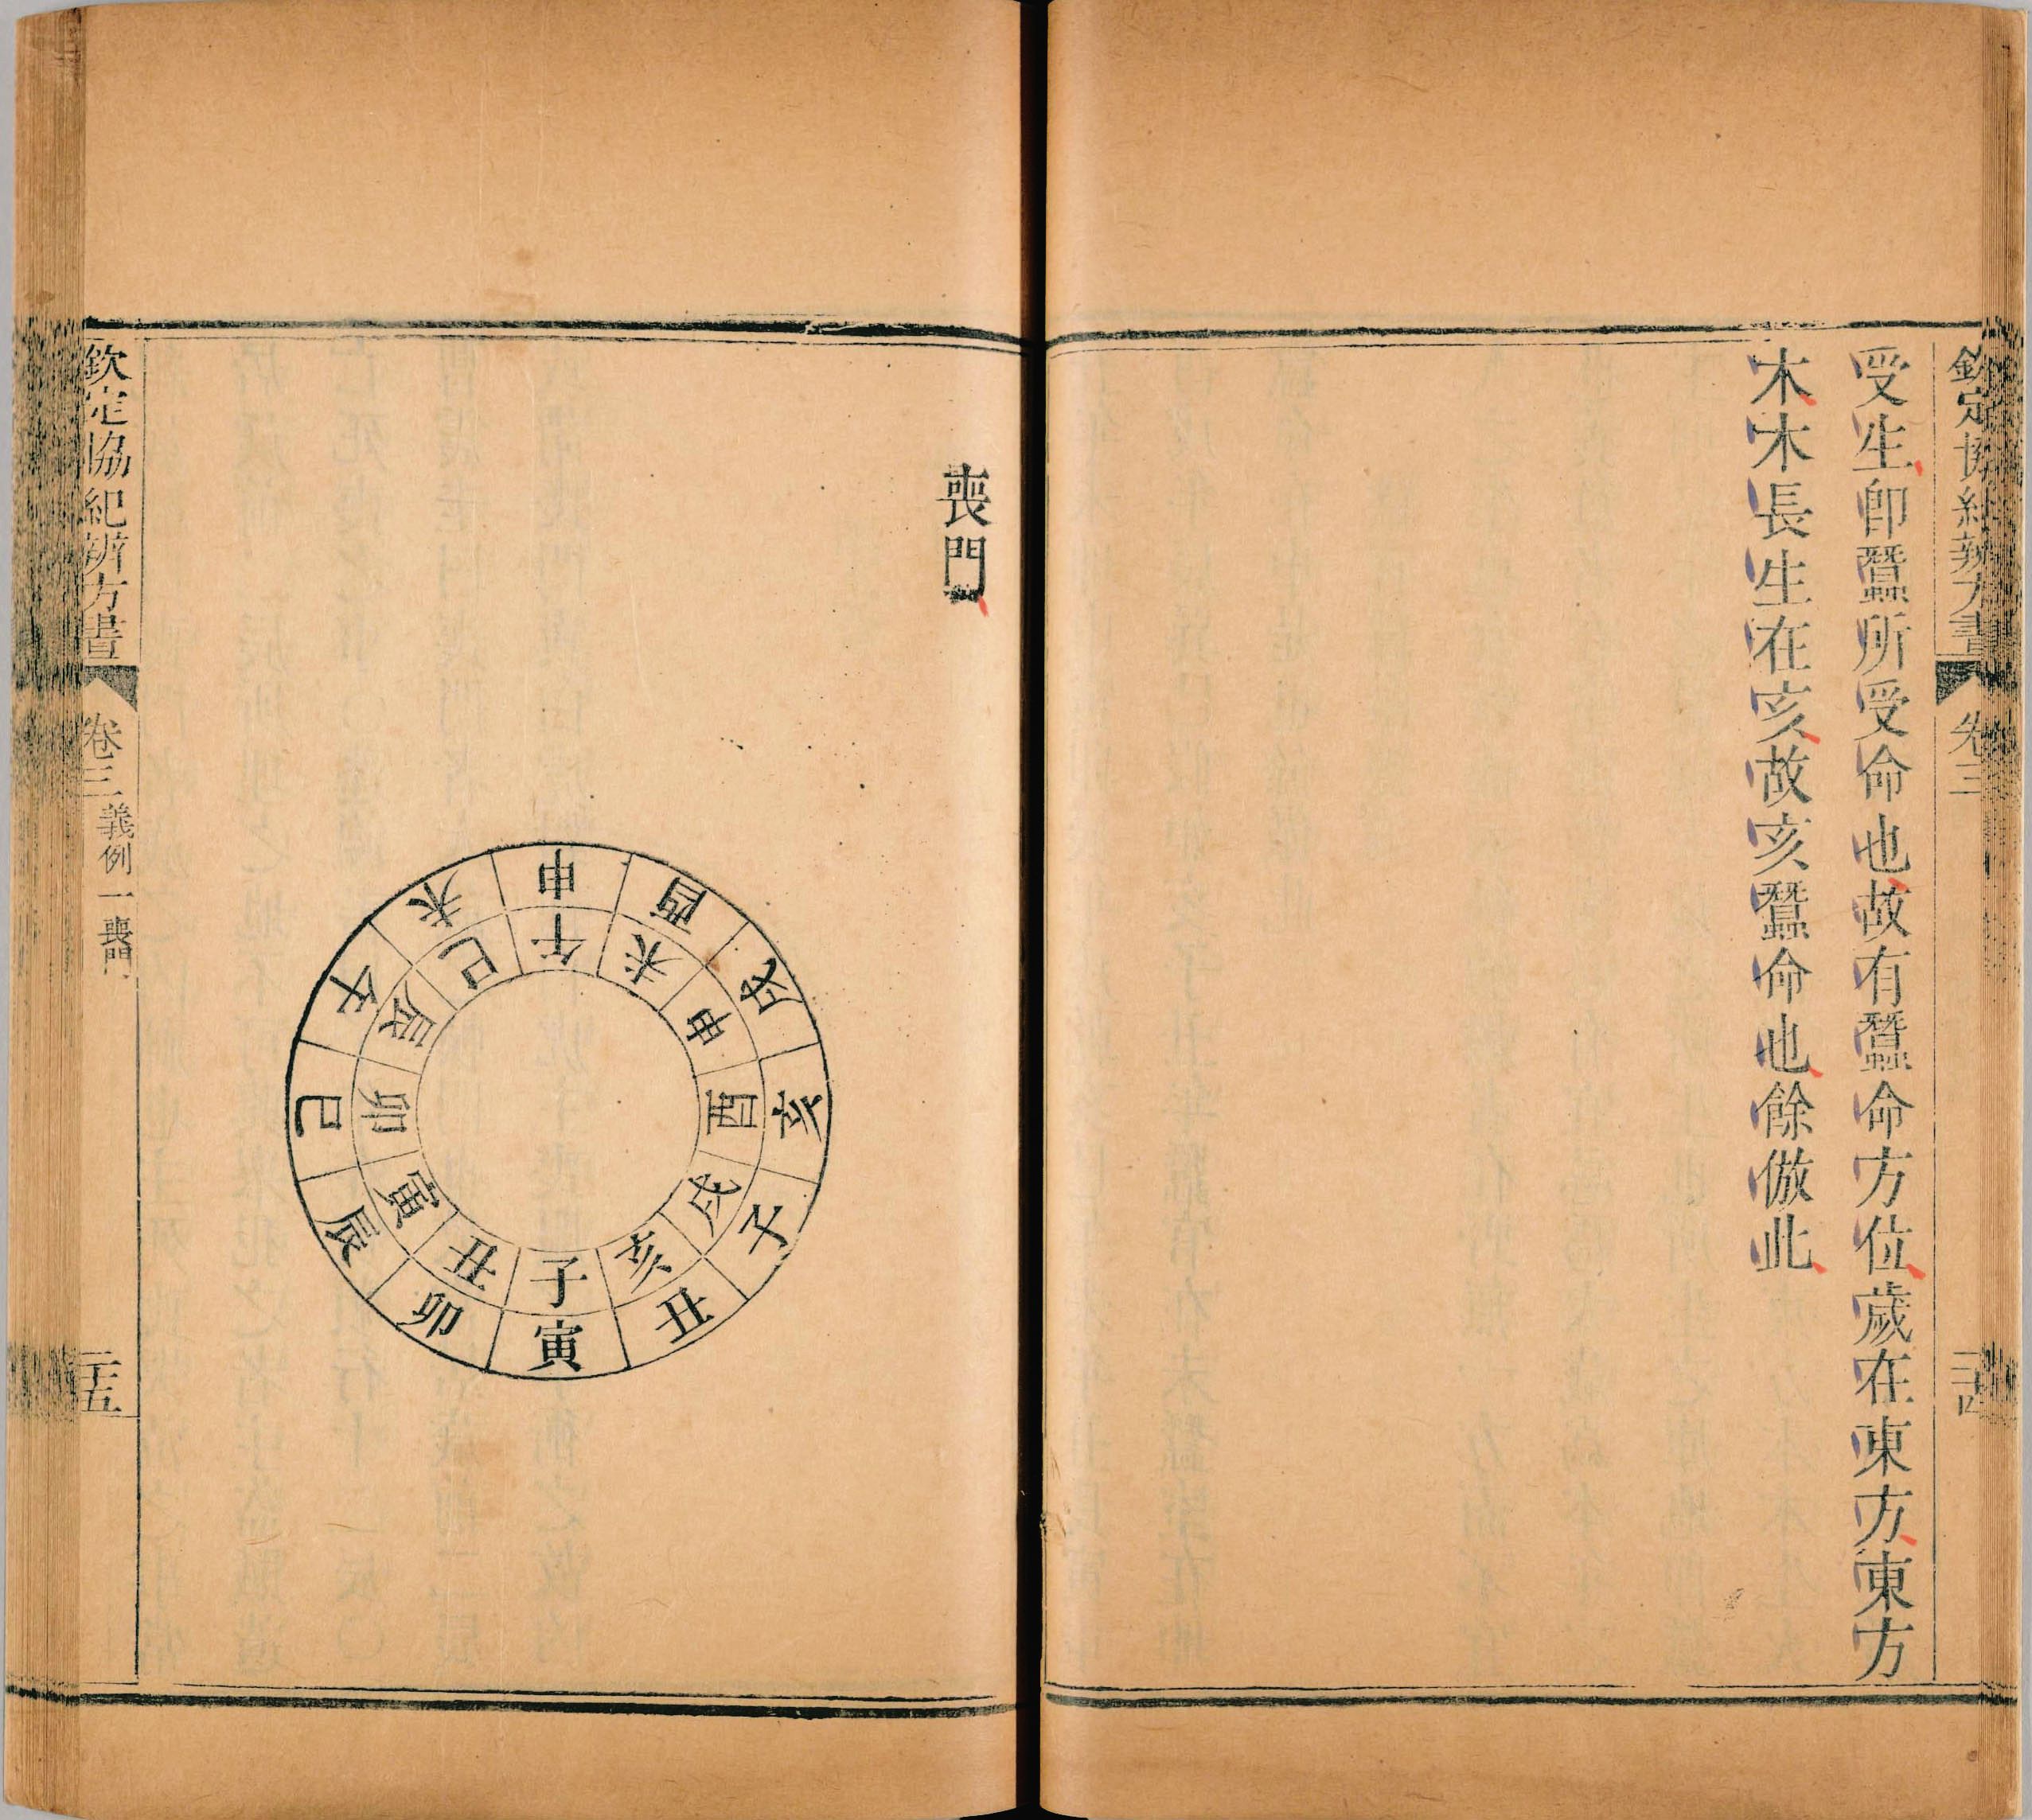 欽定協紀辨方書
卷三
二十四
受生卽蠶所受命也故有蠶命方位歲在東方東方
木木長生在亥故亥蠶命也餘倣此
喪門
申酉戌亥子丑寅卯辰巳午未
午未申酉戌亥子丑寅卯辰巳
欽定協紀辨方書
卷三 義例一 喪門
二十五